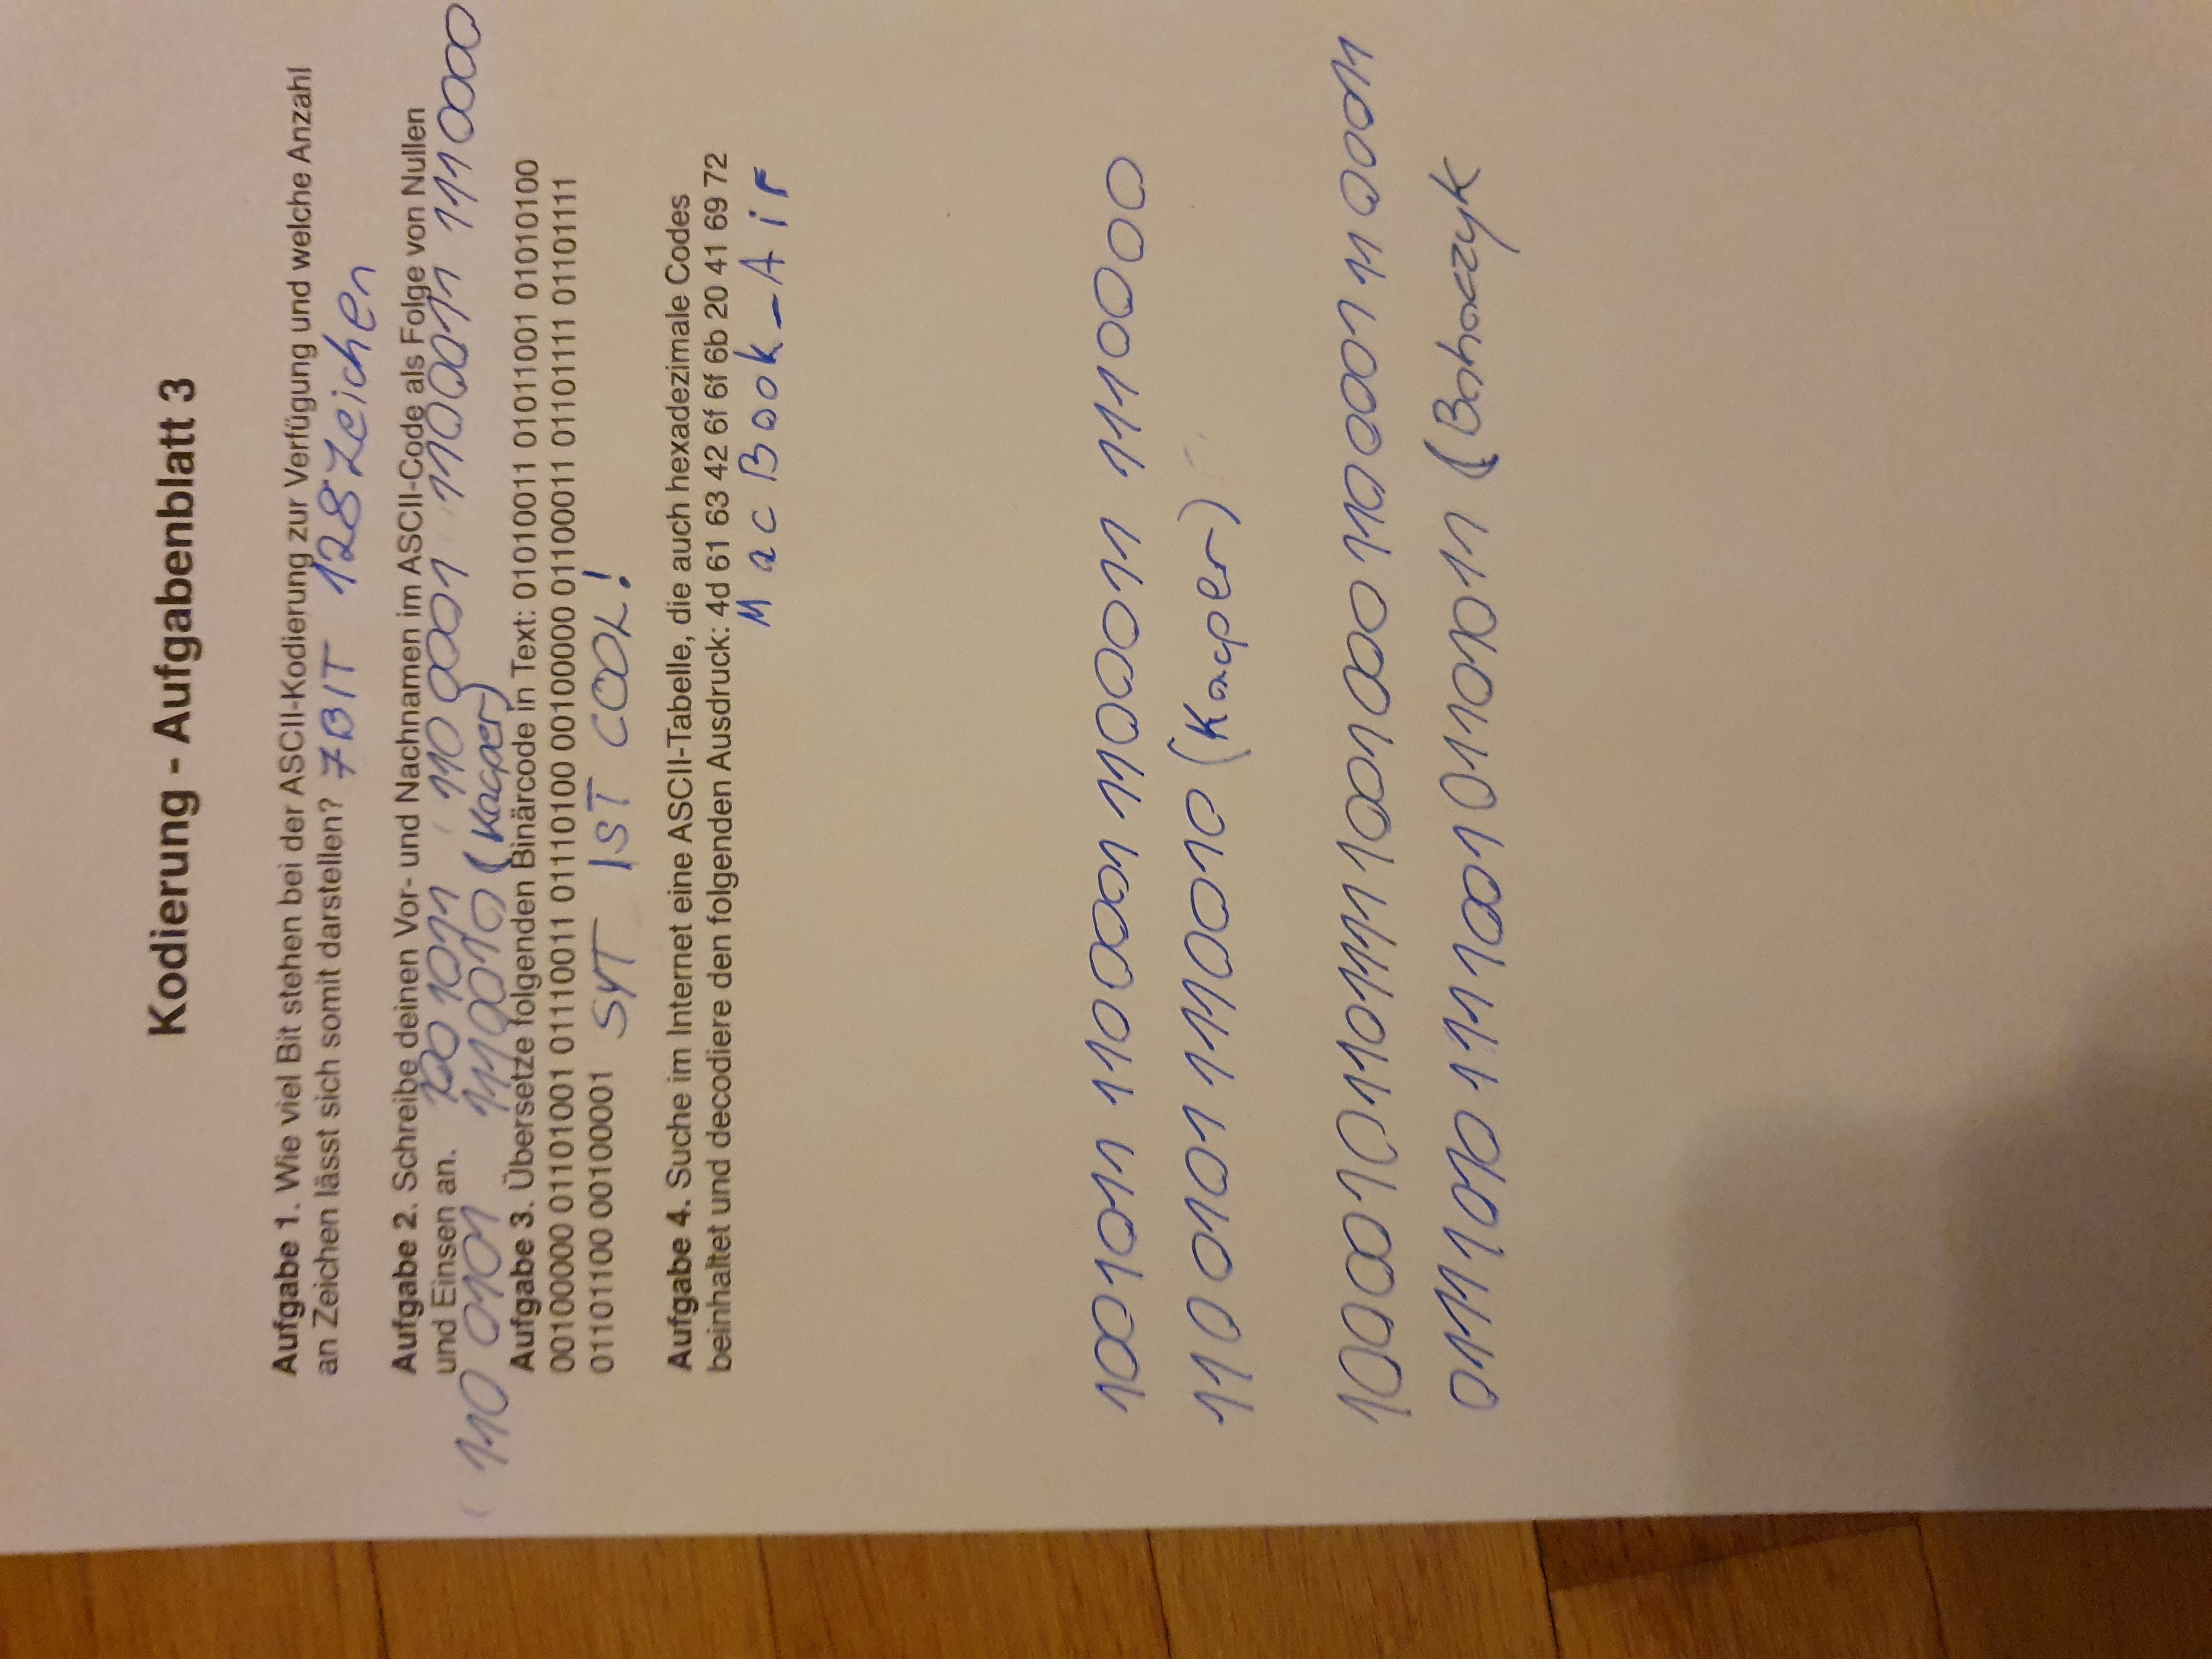 Kodierung - Aufgabenblatt 3
Aufgabe 1. Wie viel Bit stehen bei der ASCII-Kodierung zur Verfügung und welche Anzahl
an Zeichen lässt sich somit darstellen? 7BIT 128 Zeichen
Aufgabe 2. Schreibe deinen Vor- und Nachnamen im ASCII-Code als Folge von Nullen
und Einsen an. 100 1011 110 0001 1100011 1110000
110 0101 1110010 (Kacper)
Aufgabe 3. Übersetze folgenden Binärcode in Text: 01010011 01011001 01010100
00100000 01101001 01110011 01110100 00100000 01100011 01101111 01101111
01101100 00100001 SYT IST COOL!
Aufgabe 4. Suche im Internet eine ASCII-Tabelle, die auch hexadezimale Codes
beinhaltet und decodiere den folgenden Ausdruck: 4d 61 63 42 6f 6f 6b 20 41 69 72
MacBook_Air
1001011 1100001 1100011 1110000
110 0101 1110010 (Kacper)
1000010 1101111 1001000 1100001 1100011
01111010 1111001 01101011 (Bohaczyk